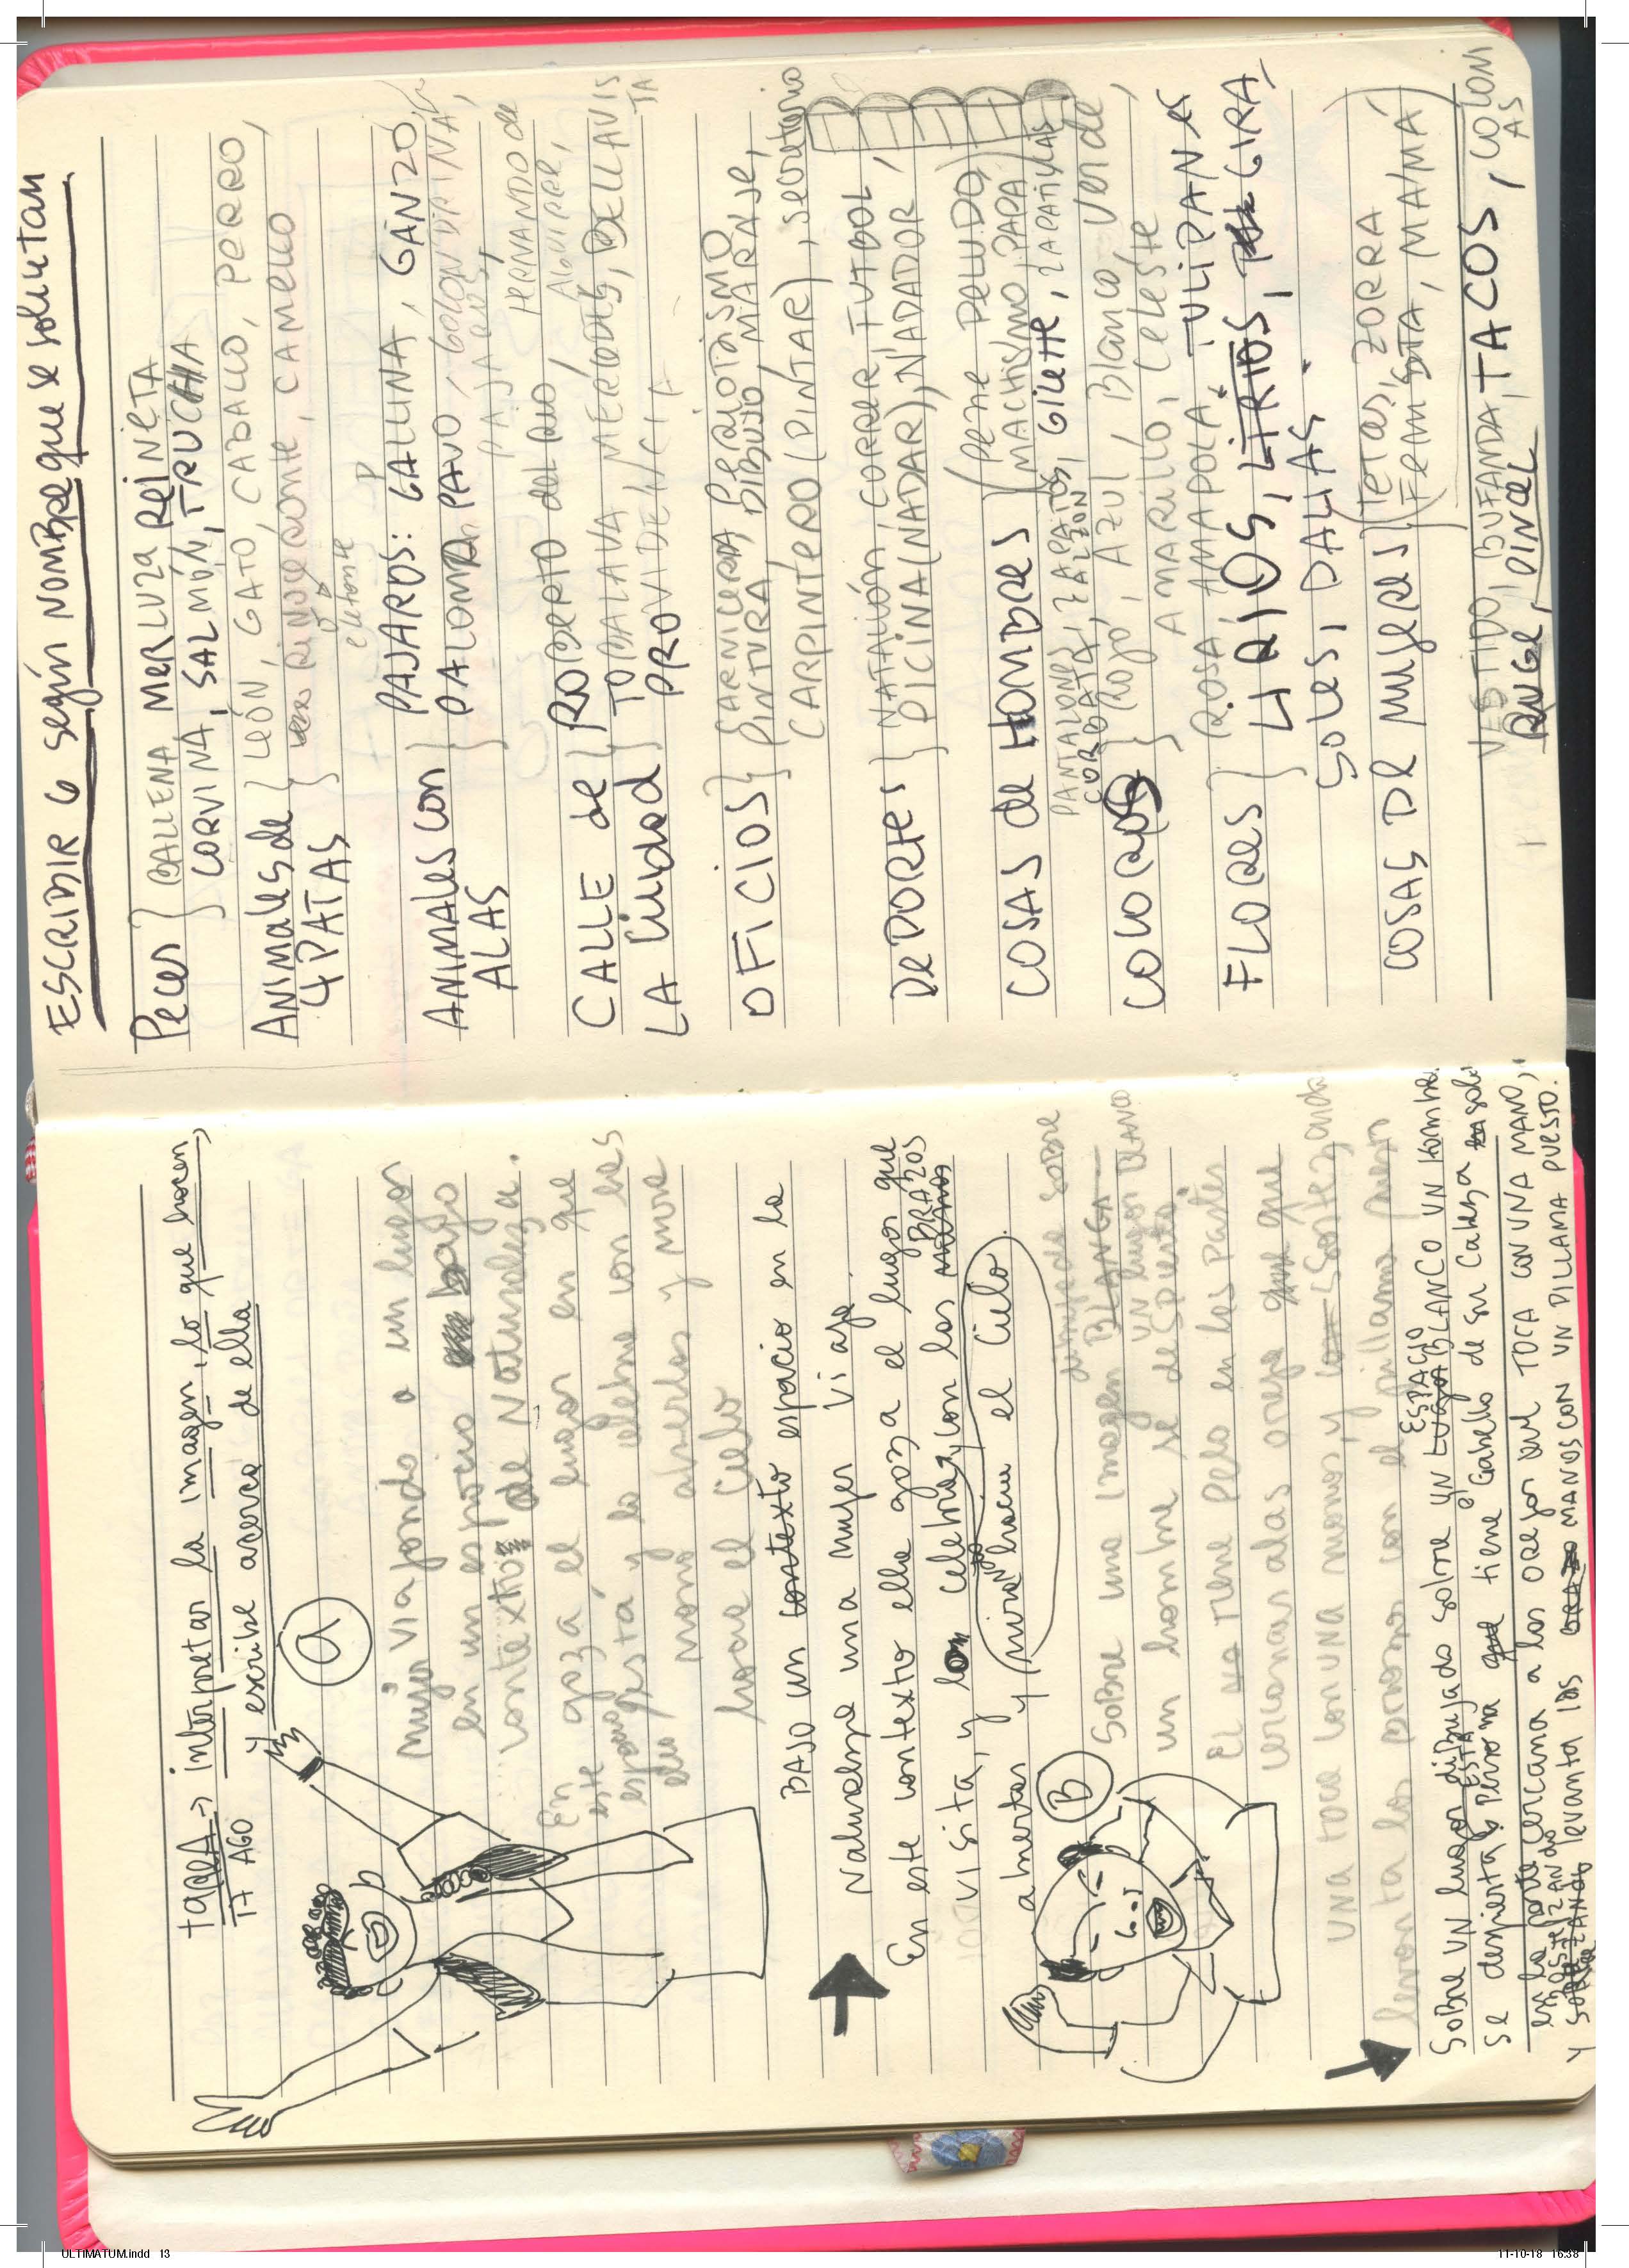 TAREA → interpretar la imagen, lo que hacen,
17 AGO y escribe acerca de ella
a
Mujer viajando a un lugar
en un espacio bajo
contexto de Naturaleza.
En este goza el lugar en que
espacio está y lo celebra con las
ella manos abiertas y mira
hacia el cielo
BAJO un contexto espacio en la
Naturaleza una mujer viaja.
En este contexto ella goza el lugar que
visita, y lo celebra y con los manos BRAZOS
abiertos y mirando hacia el cielo.
B
Sobre una imagen BLANCA dibujada sobre
un hombre se despierta. un lugar BLANCO
El no TIENE pelo en las partes
cercanas a las orejas que
UNA toca con UNA mano, y
levanta los brazos con el pillama puesto
SOBRE UN lugar dibujado sobre UN LUGAR ESPACIO BLANCO UN hombre
se despierta, ESTA persona que tiene el cabello de su cabeza solo
en la parte cercana a las orejas que TOCA CON UNA MANO,
y levanta las BRAZO MANOS CON UN PILLAMA PUESTO.
ESCRIBIR 6 según NOMBRE que se solicitan
Peces } BALLENA MERLUZA REINETA
CORVINA, SALMÓN, TRUCHA
ANIMALES de } LEÓN, GATO, CABALLO, PERRO,
4 PATAS } RINOCERONTE, CAMELLO
elefante
ANIMALES con } PAJAROS: GALLINA, GANZO,
ALAS } PALOMA PAVO, GOLONDRINA,
PAJAROS,
CALLE de } ROBERTO del RIO, HERNANDO de AGUIRRE,
LA Ciudad } TOBALABA MERCEDES, BELLAVISTA
PROVIDENCIA
OFICIOS } CARNICERIA PERIOTISMO
PINTURA, DIBUJO, MARANJE,
CARPINTERO (PINTAR), secretaria
DEPORTES } NATACIÓN, CORRER, FUTBOL,
PICINA (NADAR), NADADOR
COSAS de HOMBRES } (pene PELUDO)
(MACHISMO, PAPÁ)
PANTALONES, ZAPATOS, GILETTE, ZAPATILLAS
CORBATA, CALZON
COLORES } ROJO, AZUL, Blanco, Verde,
AMARILLO, Celeste
FLORES } ROSA, AMAPOLA, TULIPANES
LIRIOS, LIRIOS, GIRA
SOLES, DALIAS.
COSAS DE MUJERES } (TETAS, ZORRA
(FEMINISTA, MAMÁ)
VESTIDO, BUFANDA, TACOS, COLONIAS
RUGE, PINCEL
ULTIMATUM.indd 13
11-10-18 16:38